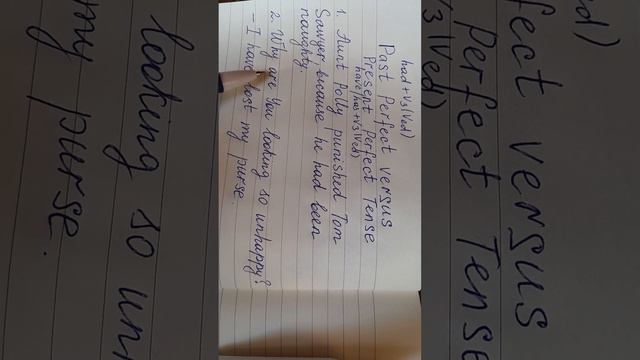 had+V3(Ved)
Past Perfect versus
Present Perfect Tense
have/has+V3(Ved)
1. Aunt Polly punished Tom
Sawyer, because he had been
naughty.
2. Why are you looking so unhappy?
- I have lost my purse.